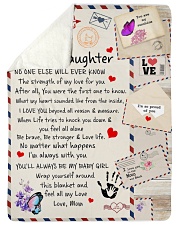 You are my
LOVE
ughter
NO ONE ELSE WILL EVER KNOW
The strength of my love for you.
After all, You were the first one to know.
What my heart sounded like from the inside,
I LOVE YOU beyond all reason & measure.
I'm so proud of you
When Life tries to knock you down &
you feel all alone
Be brave, Be stronger & Love life.
No matter what happens
I'm always with you
YOU'LL ALWAYS BE MY BABY GIRL
Wrap yourself around
this blanket and
feel all my Love
Love, Mom